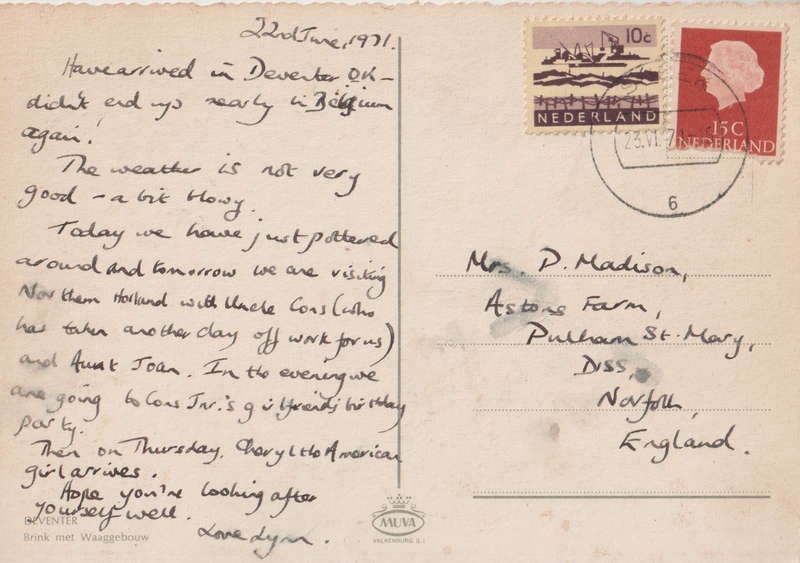 22nd June, 1971.
Have arrived in Deventer OK -
didn't end up nearly in Belgium
again!
The weather is not very
good - a bit blowy.
Today we have just pottered
around and tomorrow we are visiting
Northern Holland with Uncle Cons (who
has taken another day off work for us)
and Aunt Joan. In the evening we
are going to Cons Jnr.'s girlfriend's birthday
party.
Then on Thursday, Cheryl the American
girl arrives.
Hope you're looking after
yourself well.
Love Lynn.
DEVENTER
Brink met Waaggebouw
MUVA
VALKENBURG
10c
NEDERLAND
15C
NEDERLAND
23.VI.7
6
Mrs. D. Madison,
Astons Farm,
Pulham St. Mary,
Diss,
Norfolk,
England.